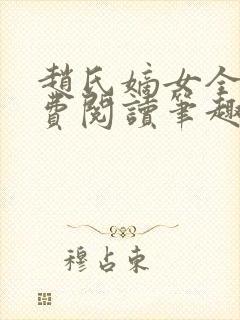 趙氏嫡女全
費閱讀筆趣
穆占東